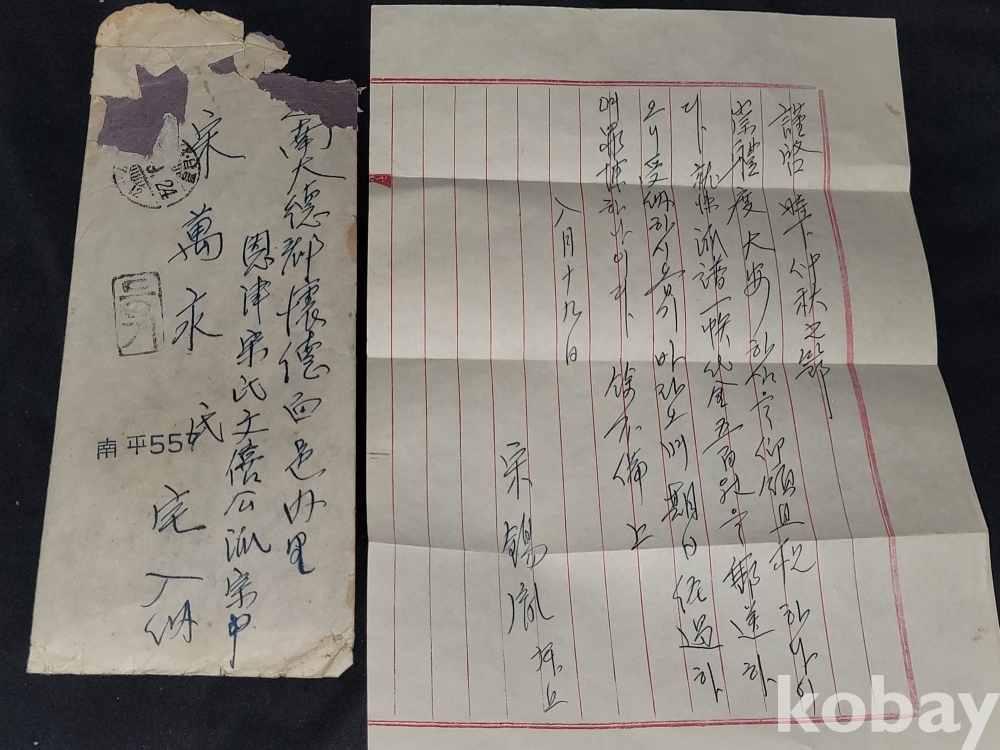 南大德郡懷德面邑內里
恩津宋氏文僖公派宗中
宋萬永氏宅入納
南平557
謹啓 時下仲秋之節
禮度大安하심을 仰願且祝하나이
다 就悚派譜一帙代金五百원을 郵送하
오니 受納하시옵기 바라오며 期日經過하
여 罪悚하나이다 餘不備上
八月十九日
宋錫胤 拜上
kobay